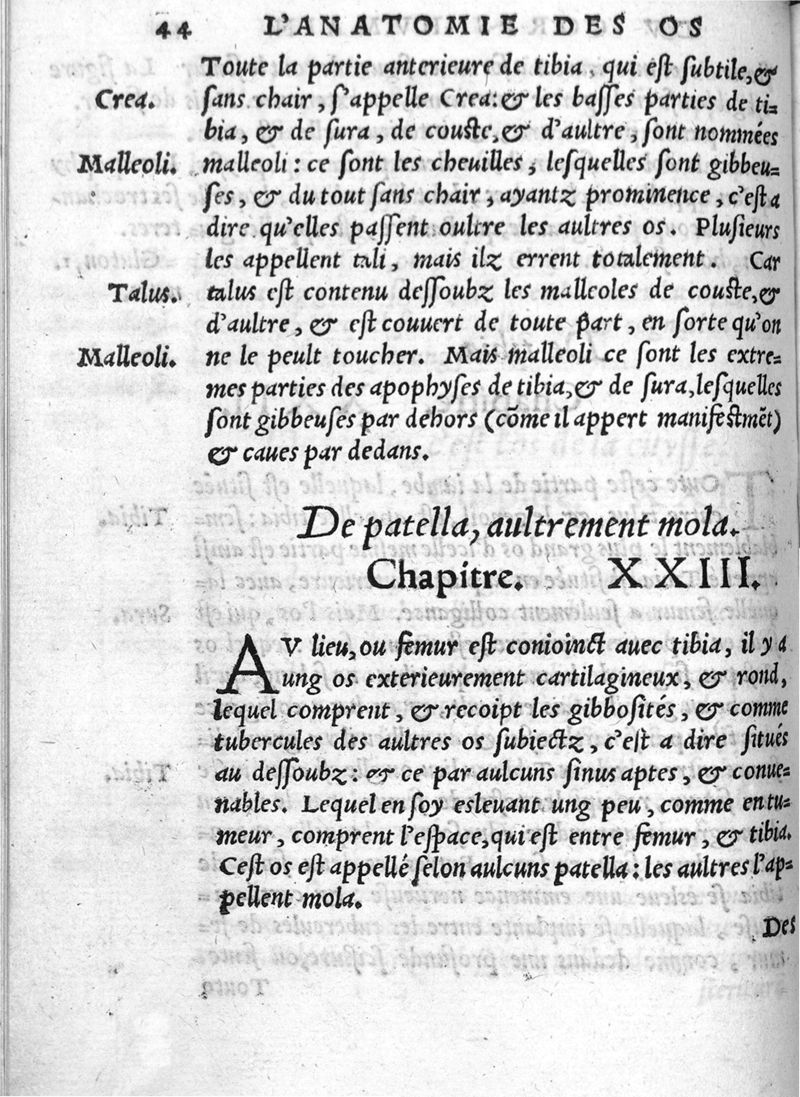 44 L'ANATOMIE DES OS
Toute la partie anterieure de tibia, qui eſt ſubtile, &
Crea. ſans chair, ſ'appelle Crea: & les baſſes parties de ti-
bia, & de ſura, de couſte, & d'aultre, ſont nommées
Malleoli. malleoli: ce ſont les cheuilles, leſquelles ſont gibbeu-
ſes, & du tout ſans chair, ayantz prominence, c'eſt a
dire qu'elles paſſent oultre les aultres os. Pluſieurs
les appellent tali, mais ilz errent totalement. Car
Talus. talus eſt contenu deſſoubz les malleoles de couſte, &
d'aultre, & eſt couuert de toute part, en ſorte qu'on
Malleoli. ne le peult toucher. Mais malleoli ce ſont les extre-
mes parties des apophyſes de tibia, & de ſura, leſquelles
ſont gibbeuſes par dehors (cõme il appert manifeſtmẽt)
& caues par dedans.
De patella, aultrement mola.
Chapitre. XXIII.
AV lieu, ou femur eſt conioinct auec tibia, il y a
ung os exterieurement cartilagineux, & rond,
lequel comprent, & recoipt les gibboſités, & comme
tubercules des aultres os ſubiectz, c'eſt a dire ſitués
au deſſoubz: & ce par aulcuns ſinus aptes, & conue-
nables. Lequel en ſoy esleuant ung peu, comme en tu-
meur, comprent l'eſpace, qui eſt entre femur, & tibia.
Ceſt os eſt appellé ſelon aulcuns patella: les aultres l'ap-
pellent mola.
Des